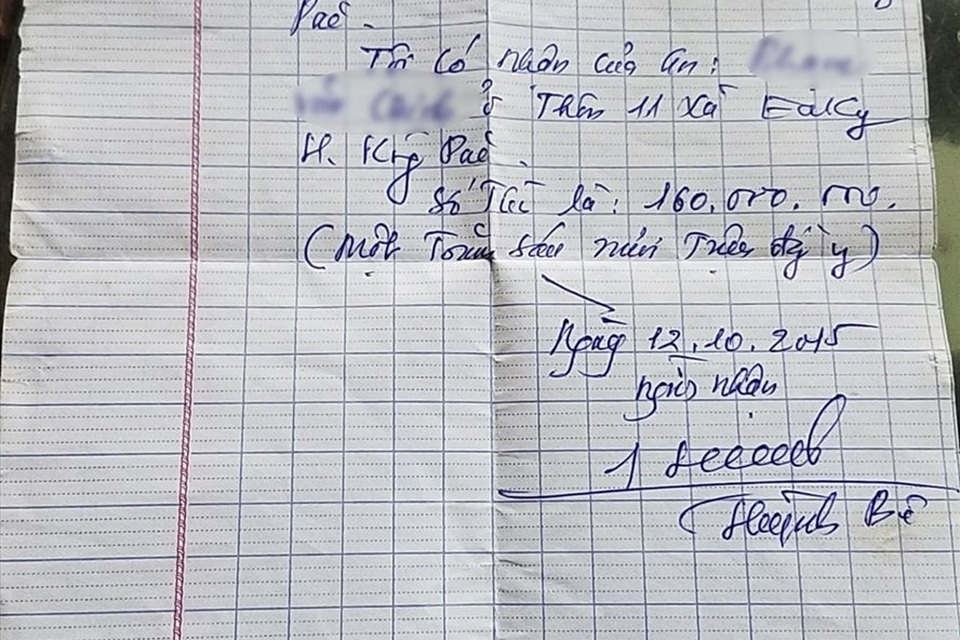 Pắc.
Tôi có nhận của an:
ở Thôn 11 xã EaKly
H. Krông Pắc.
Số Tiền là: 160.000.000.
(Một Trăm Sáu mươi Triệu đồng y)
Ngày 12.10.2015
người nhận
Huỳnh Bê